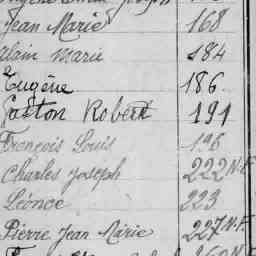 Jean Marie 168
Alain Marie 184
Eugène 186
Gaston Robert 191
François Louis 196
Charles Joseph 222 N.F.
Léonce 223
Pierre Jean Marie 227 N.F.